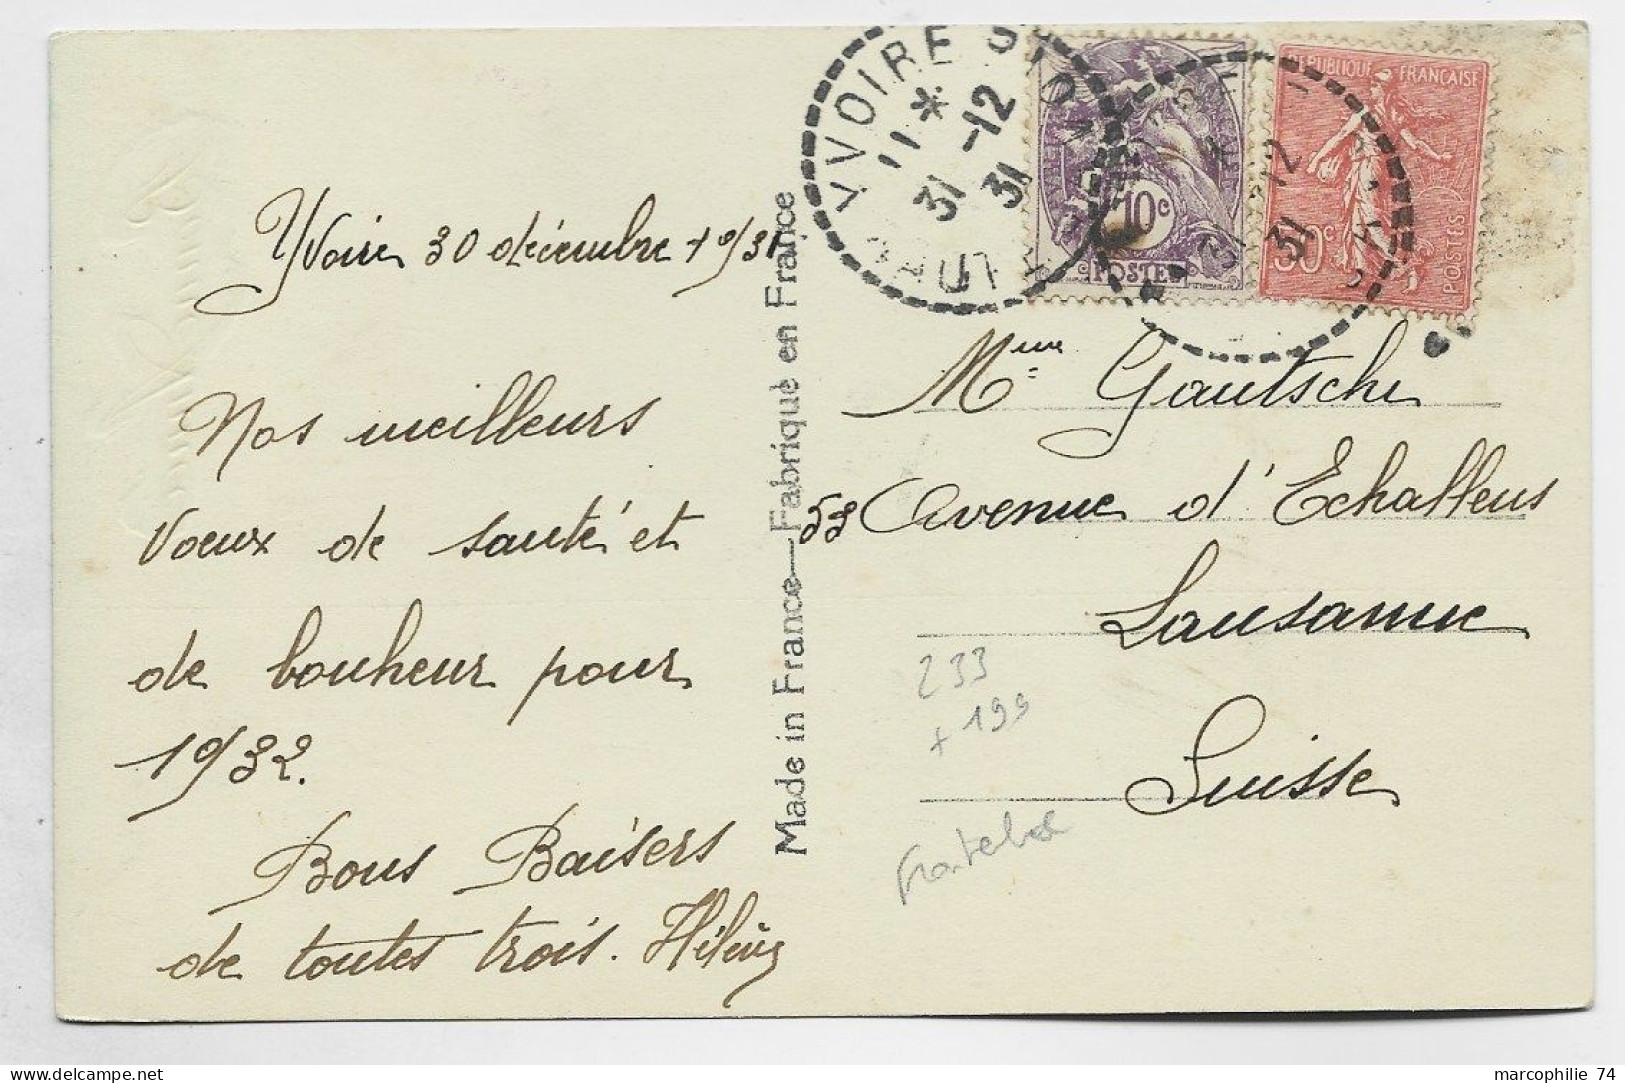 Yvoire 30 décembre 1931
Nos meilleurs
voeux de santé et
de bonheur pour
1932.
Bons Baisers
de toutes trois.
Made in France—Fabriqué en France
YVOIRE
11 *
31 -12
31
10c
POSTES
RÉPUBLIQUE FRANÇAISE
50c
POSTES
Mme Gautschi
53 Avenue d'Echallens
Lausanne
Suisse
233
+ 199
marcophilie 74